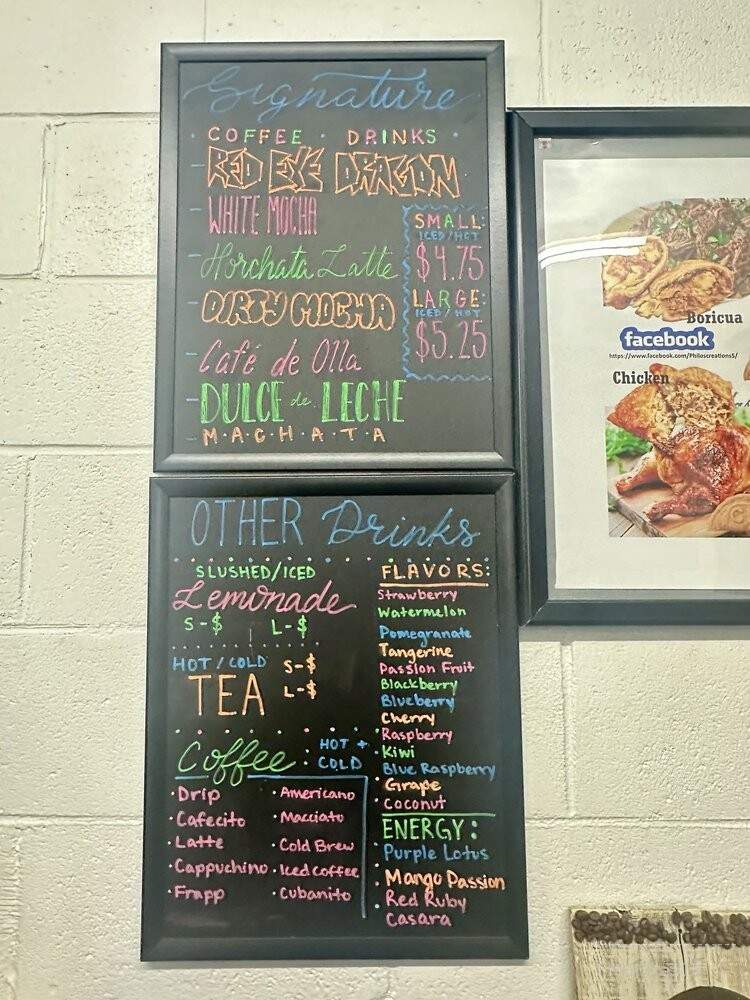 Signature
COFFEE · DRINKS
- RED EYE DRAGON
- WHITE MOCHA
- Horchata Latte
- DIRTY MOCHA
- Café de Olla
- DULCE de LECHE
- M·A·C·H·A·T·A
SMALL:
ICED/HOT
$4.75
LARGE:
ICED/HOT
$5.25
OTHER Drinks
SLUSHED/ICED
Lemonade
S-$ L-$
HOT/COLD
TEA
S-$
L-$
Coffee: HOT +
COLD
· Drip
· Cafecito
· Latte
· Cappuchino
· Frapp
· Americano
· Macciato
· Cold Brew
· Iced coffee
· Cubanito
FLAVORS:
Strawberry
Watermelon
Pomegranate
Tangerine
Passion Fruit
Blackberry
Blueberry
Cherry
Raspberry
· Kiwi
Blue Raspberry
· Grape
· Coconut
ENERGY:
· Purple Lotus
· Mango Passion
· Red Ruby
· Casara
Boricua
facebook
https://www.facebook.com/Philoscreations5/
Chicken